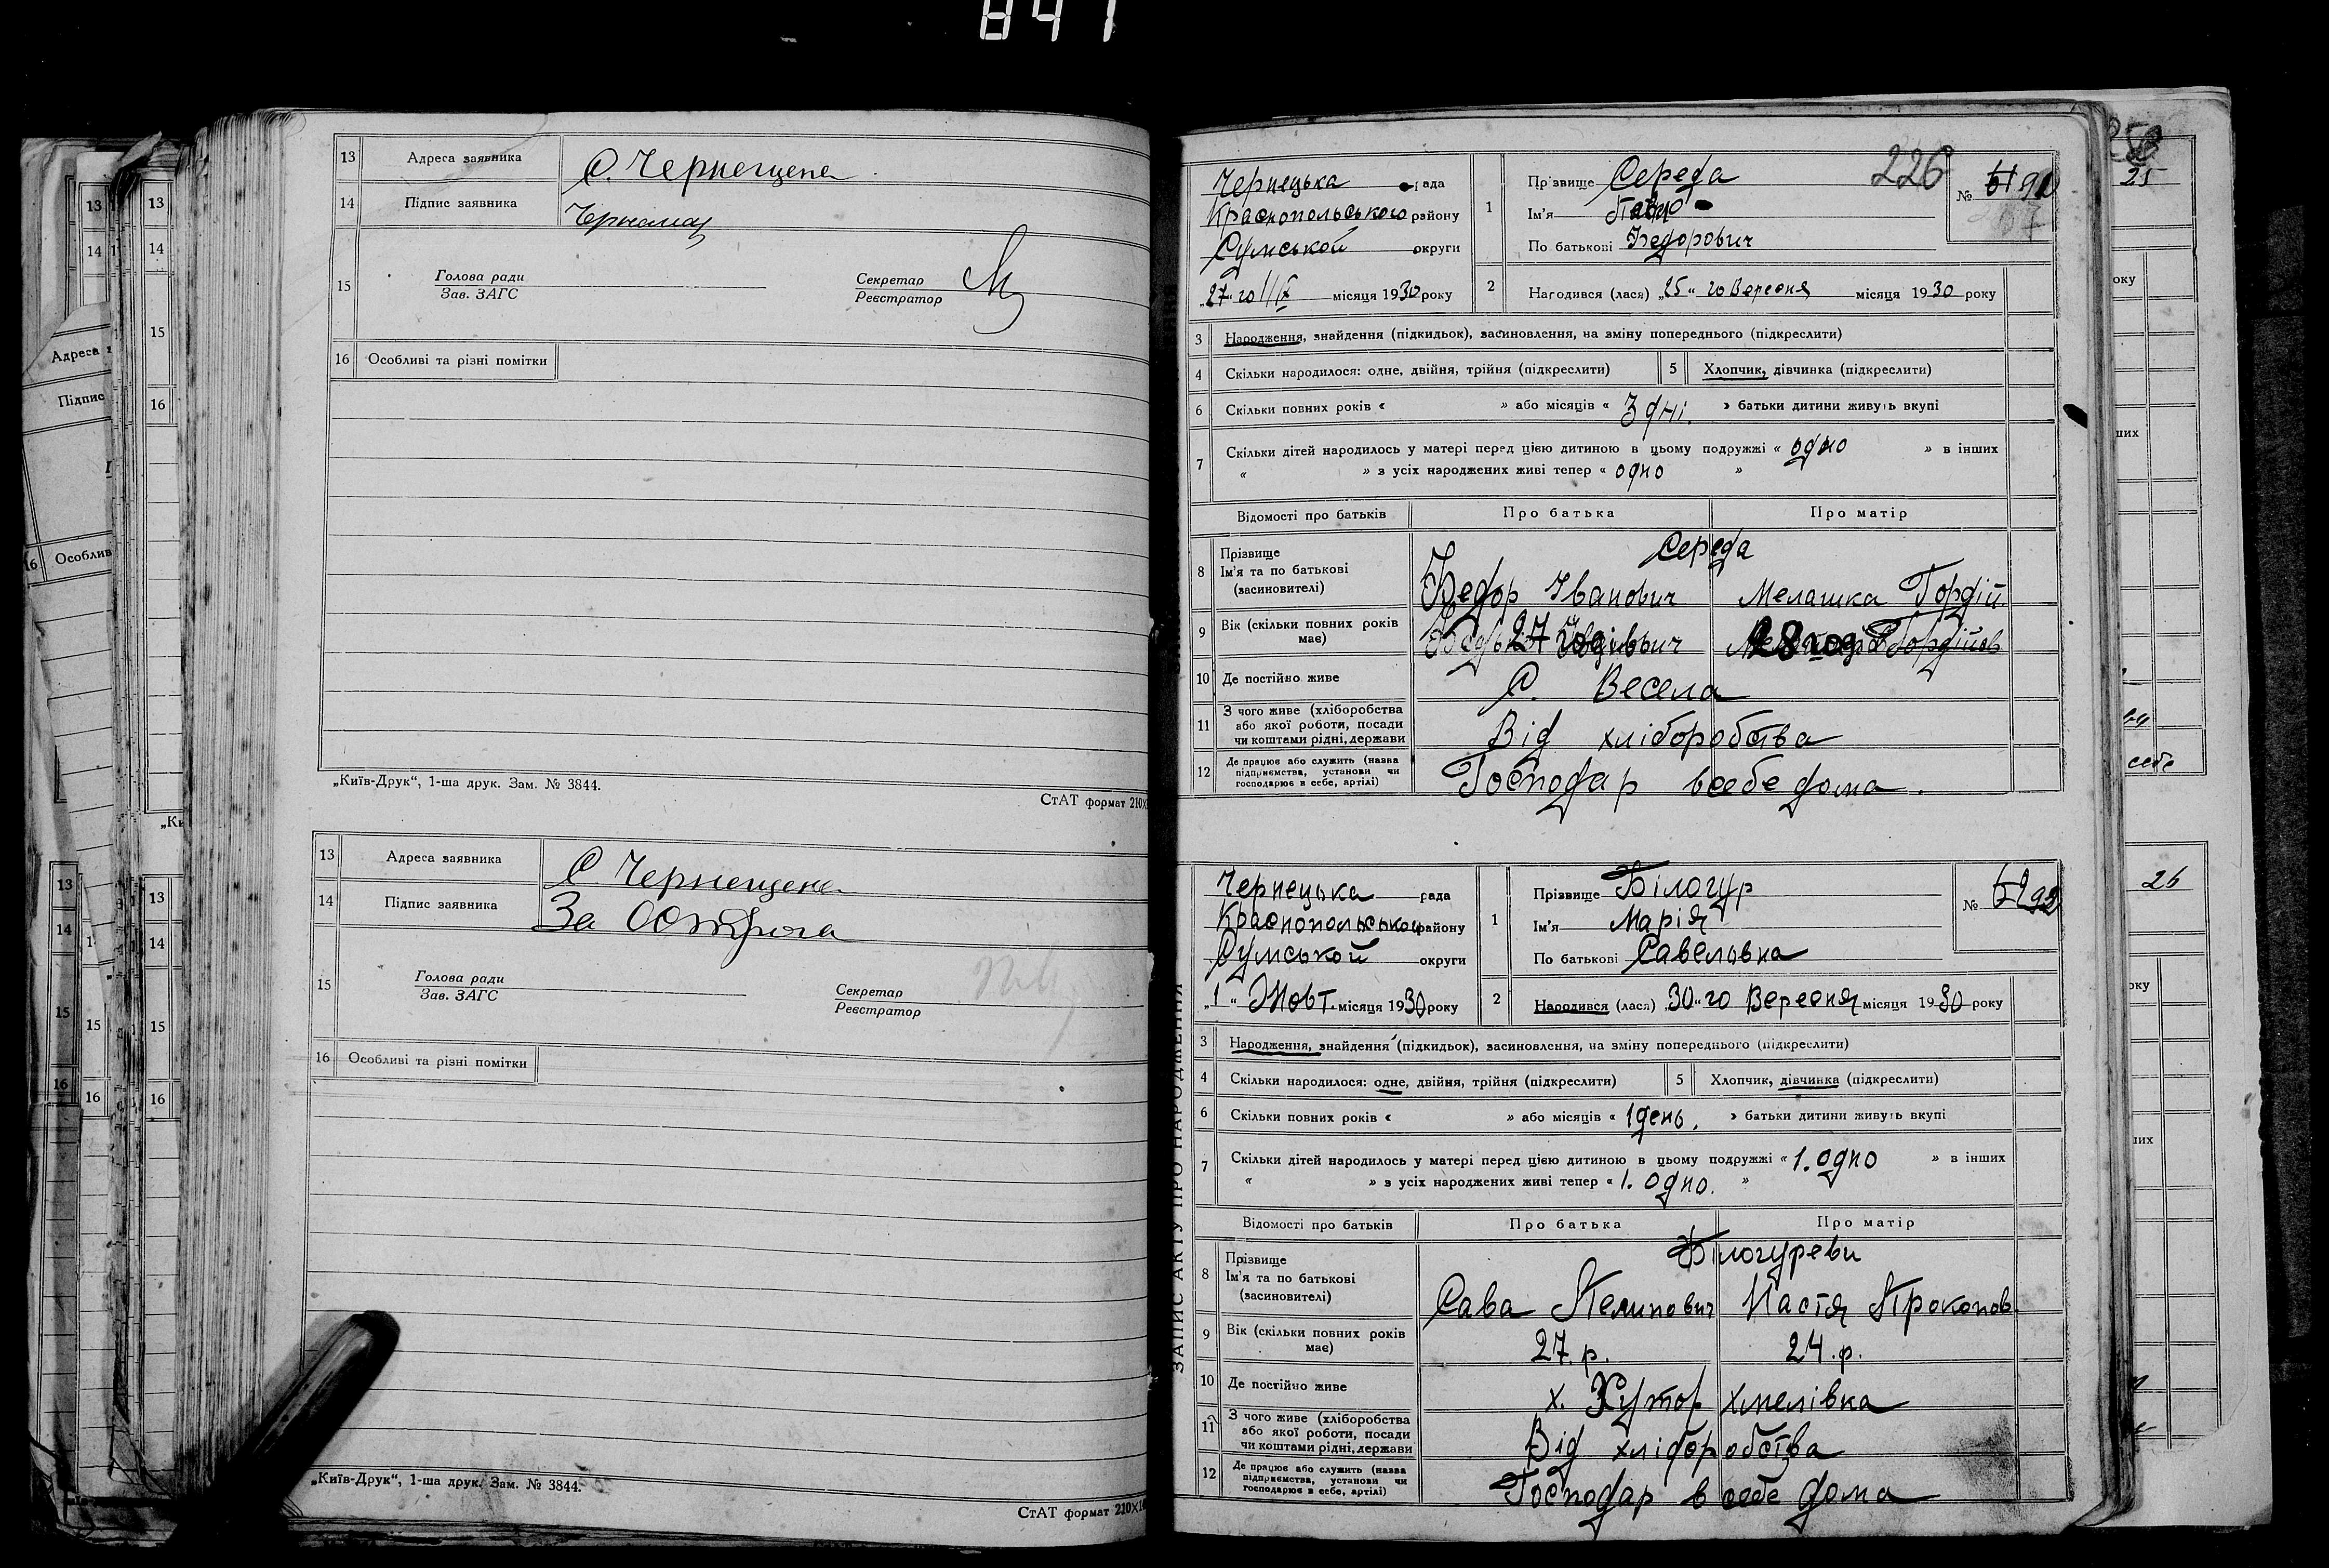 841
13 Адреса заявника С. Чернещена
14 Підпис заявника
15 Голова ради
Зав. ЗАГС
Секретар
Реєстратор
16 Особливі та різні помітки
„Київ-Друк“, 1-ша друк. Зам. № 3844.
СтАТ формат 210х
13 Адреса заявника С Чернещена
14 Підпис заявника За
15 Голова ради
Зав. ЗАГС
Секретар
Реєстратор
16 Особливі та різні помітки
„Київ-Друк“, 1-ша друк. Зам. № 3844.
СтАТ формат 210х14
226
Чернецька рада
Краснопольського району
Сумської округи
„27“ го IX місяця 1930 року
1 Прізвище Середа
Ім'я
По батькові Федорович
№ 61 91
2 Народився (лася) „25“ го Вересня місяця 1930 року
3 Народження, знайдення (підкидьок), засиновлення, на зміну попереднього (підкреслити)
4 Скільки народилося: одне, двійня, трійня (підкреслити) 5 Хлопчик, дівчинка (підкреслити)
6 Скільки повних років « » або місяців « 3 дні. » батьки дитини живуть вкупі
7 Скільки дітей народилось у матері перед цією дитиною в цьому подружжі « одно » в інших
« » з усіх народжених живі тепер « одно »
Відомості про батьків Про батька Про матір
8 Прізвище Середа
Ім'я та по батькові
(засиновителі) Федор Іванович Мелашка Гордій.
9 Вік (скільки повних років має) 27 28
10 Де постійно живе С. Весела
11 З чого живе (хліборобства
або якої роботи, посади
чи коштами рідні, держави Від хліборобства
12 Де працює або служить (назва
підприємства, установи чи
господарює в себе, артілі) Господар всебе дома.
ЗАПИС АКТУ ПРО НАРОДЖЕННЯ
Чернецька рада
Краснопольськой району
Сумськой округи
„1“ Жовт. місяця 1930 року
1 Прізвище Білогур
Ім'я Марія
По батькові Савельвна
№ 62 92
2 Народився (лася) „30“ го Вересня місяця 1930 року
3 Народження, знайдення (підкидьок), засиновлення, на зміну попереднього (підкреслити)
4 Скільки народилося: одне, двійня, трійня (підкреслити) 5 Хлопчик, дівчинка (підкреслити)
6 Скільки повних років « » або місяців « 1 день. » батьки дитини живуть вкупі
7 Скільки дітей народилось у матері перед цією дитиною в цьому подружжі « 1. одно » в інших
« » з усіх народжених живі тепер « 1. одно. »
Відомості про батьків Про батька Про матір
8 Прізвище Білогуреви
Ім'я та по батькові
(засиновителі) Сава Пелипович Настя Прокопов.
9 Вік (скільки повних років має) 27. р. 24. р.
10 Де постійно живе х. Хутор хмелівка
11 З чого живе (хліборобства
або якої роботи, посади
чи коштами рідні, держави Від хліборобства
12 Де працює або служить (назва
підприємства, установи чи
господарює в себе, артілі) Господар в себе дома
25
26
себе